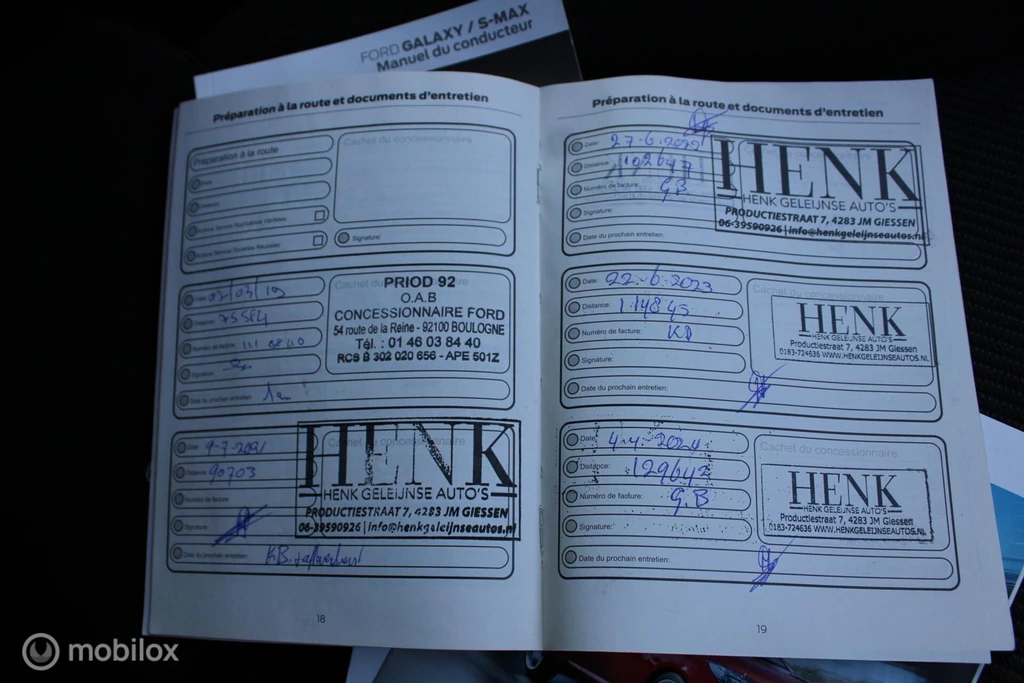 FORD GALAXY / S-MAX
Manuel du conducteur
Préparation à la route et documents d'entretien
Préparation à la route
Cachet du concessionnaire
Date:
Signature:
Date: 02/03/19
Distance: 75584
Numéro de facture:
Signature:
Date du prochain entretien: 1 an
Cachet du concessionnaire
PRIOD 92
O.A.B
CONCESSIONNAIRE FORD
54 route de la Reine - 92100 BOULOGNE
Tél. : 01 46 03 84 40
RCS B 302 020 656 - APE 501Z
Date: 9-7-2021
Distance: 90703
Numéro de facture
Signature:
Date du prochain entretien:
Cachet du concessionnaire
HENK
HENK GELEIJNSE AUTO'S
PRODUCTIESTRAAT 7, 4283 JM GIESSEN
06-39590926 | info@henkgeleijnseautos.nl
18
Préparation à la route et documents d'entretien
Date: 27-6-2022
Distance: 102647
Numéro de facture: G.B
Signature:
Date du prochain entretien:
HENK
HENK GELEIJNSE AUTO'S
PRODUCTIESTRAAT 7, 4283 JM GIESSEN
06-39590926 | info@henkgeleijnseautos.nl
Date: 22-6-2023
Distance: 114845
Numéro de facture: KB
Signature:
Date du prochain entretien:
Cachet du concessionnaire
HENK
HENK GELEIJNSE AUTO'S
Productiestraat 7, 4283 JM Giessen
0183-724636 WWW.HENKGELEIJNSEAUTOS.NL
Date: 4-4-2024
Distance: 129642
Numéro de facture: G.B
Signature:
Date du prochain entretien:
Cachet du concessionnaire
HENK
HENK GELEIJNSE AUTO'S
Productiestraat 7, 4283 JM Giessen
0183-724636 WWW.HENKGELEIJNSEAUTOS.NL
19
mobilox